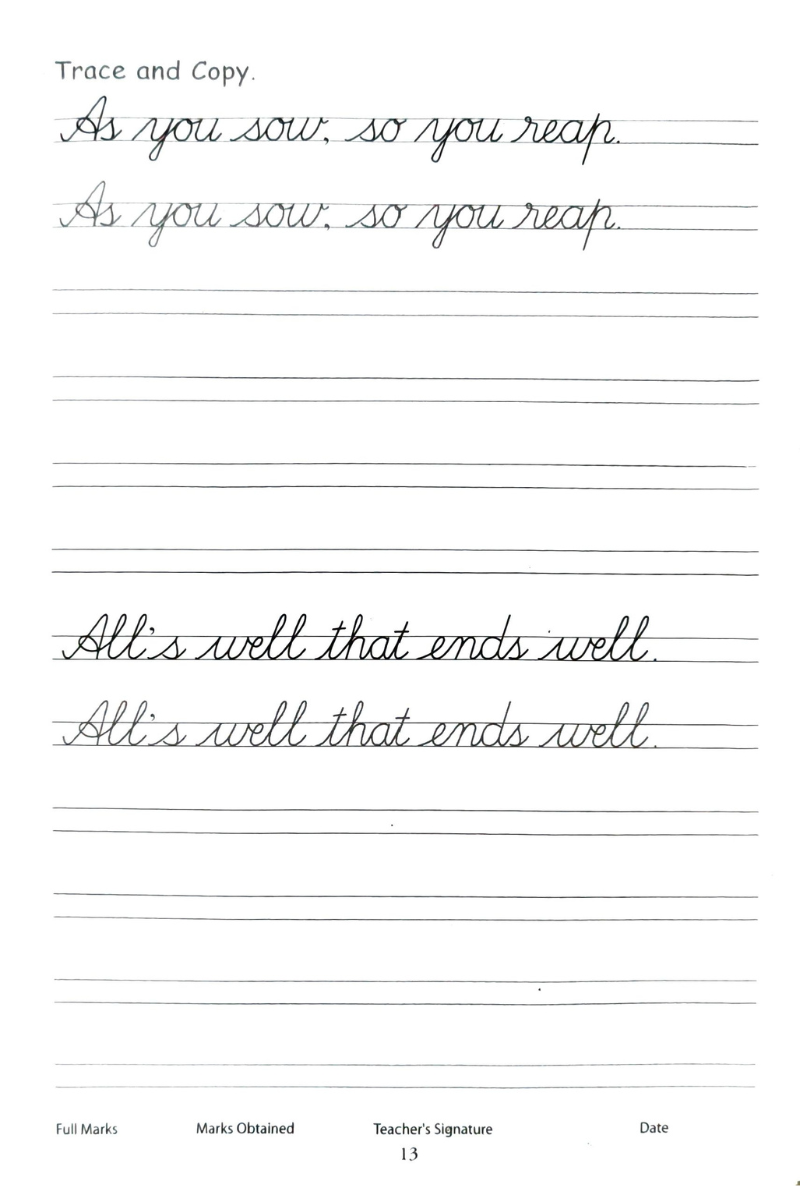 Trace and Copy.
As you sow, so you reap.
As you sow, so you reap.
All's well that ends well.
All's well that ends well.
Full Marks Marks Obtained Teacher's Signature Date
13